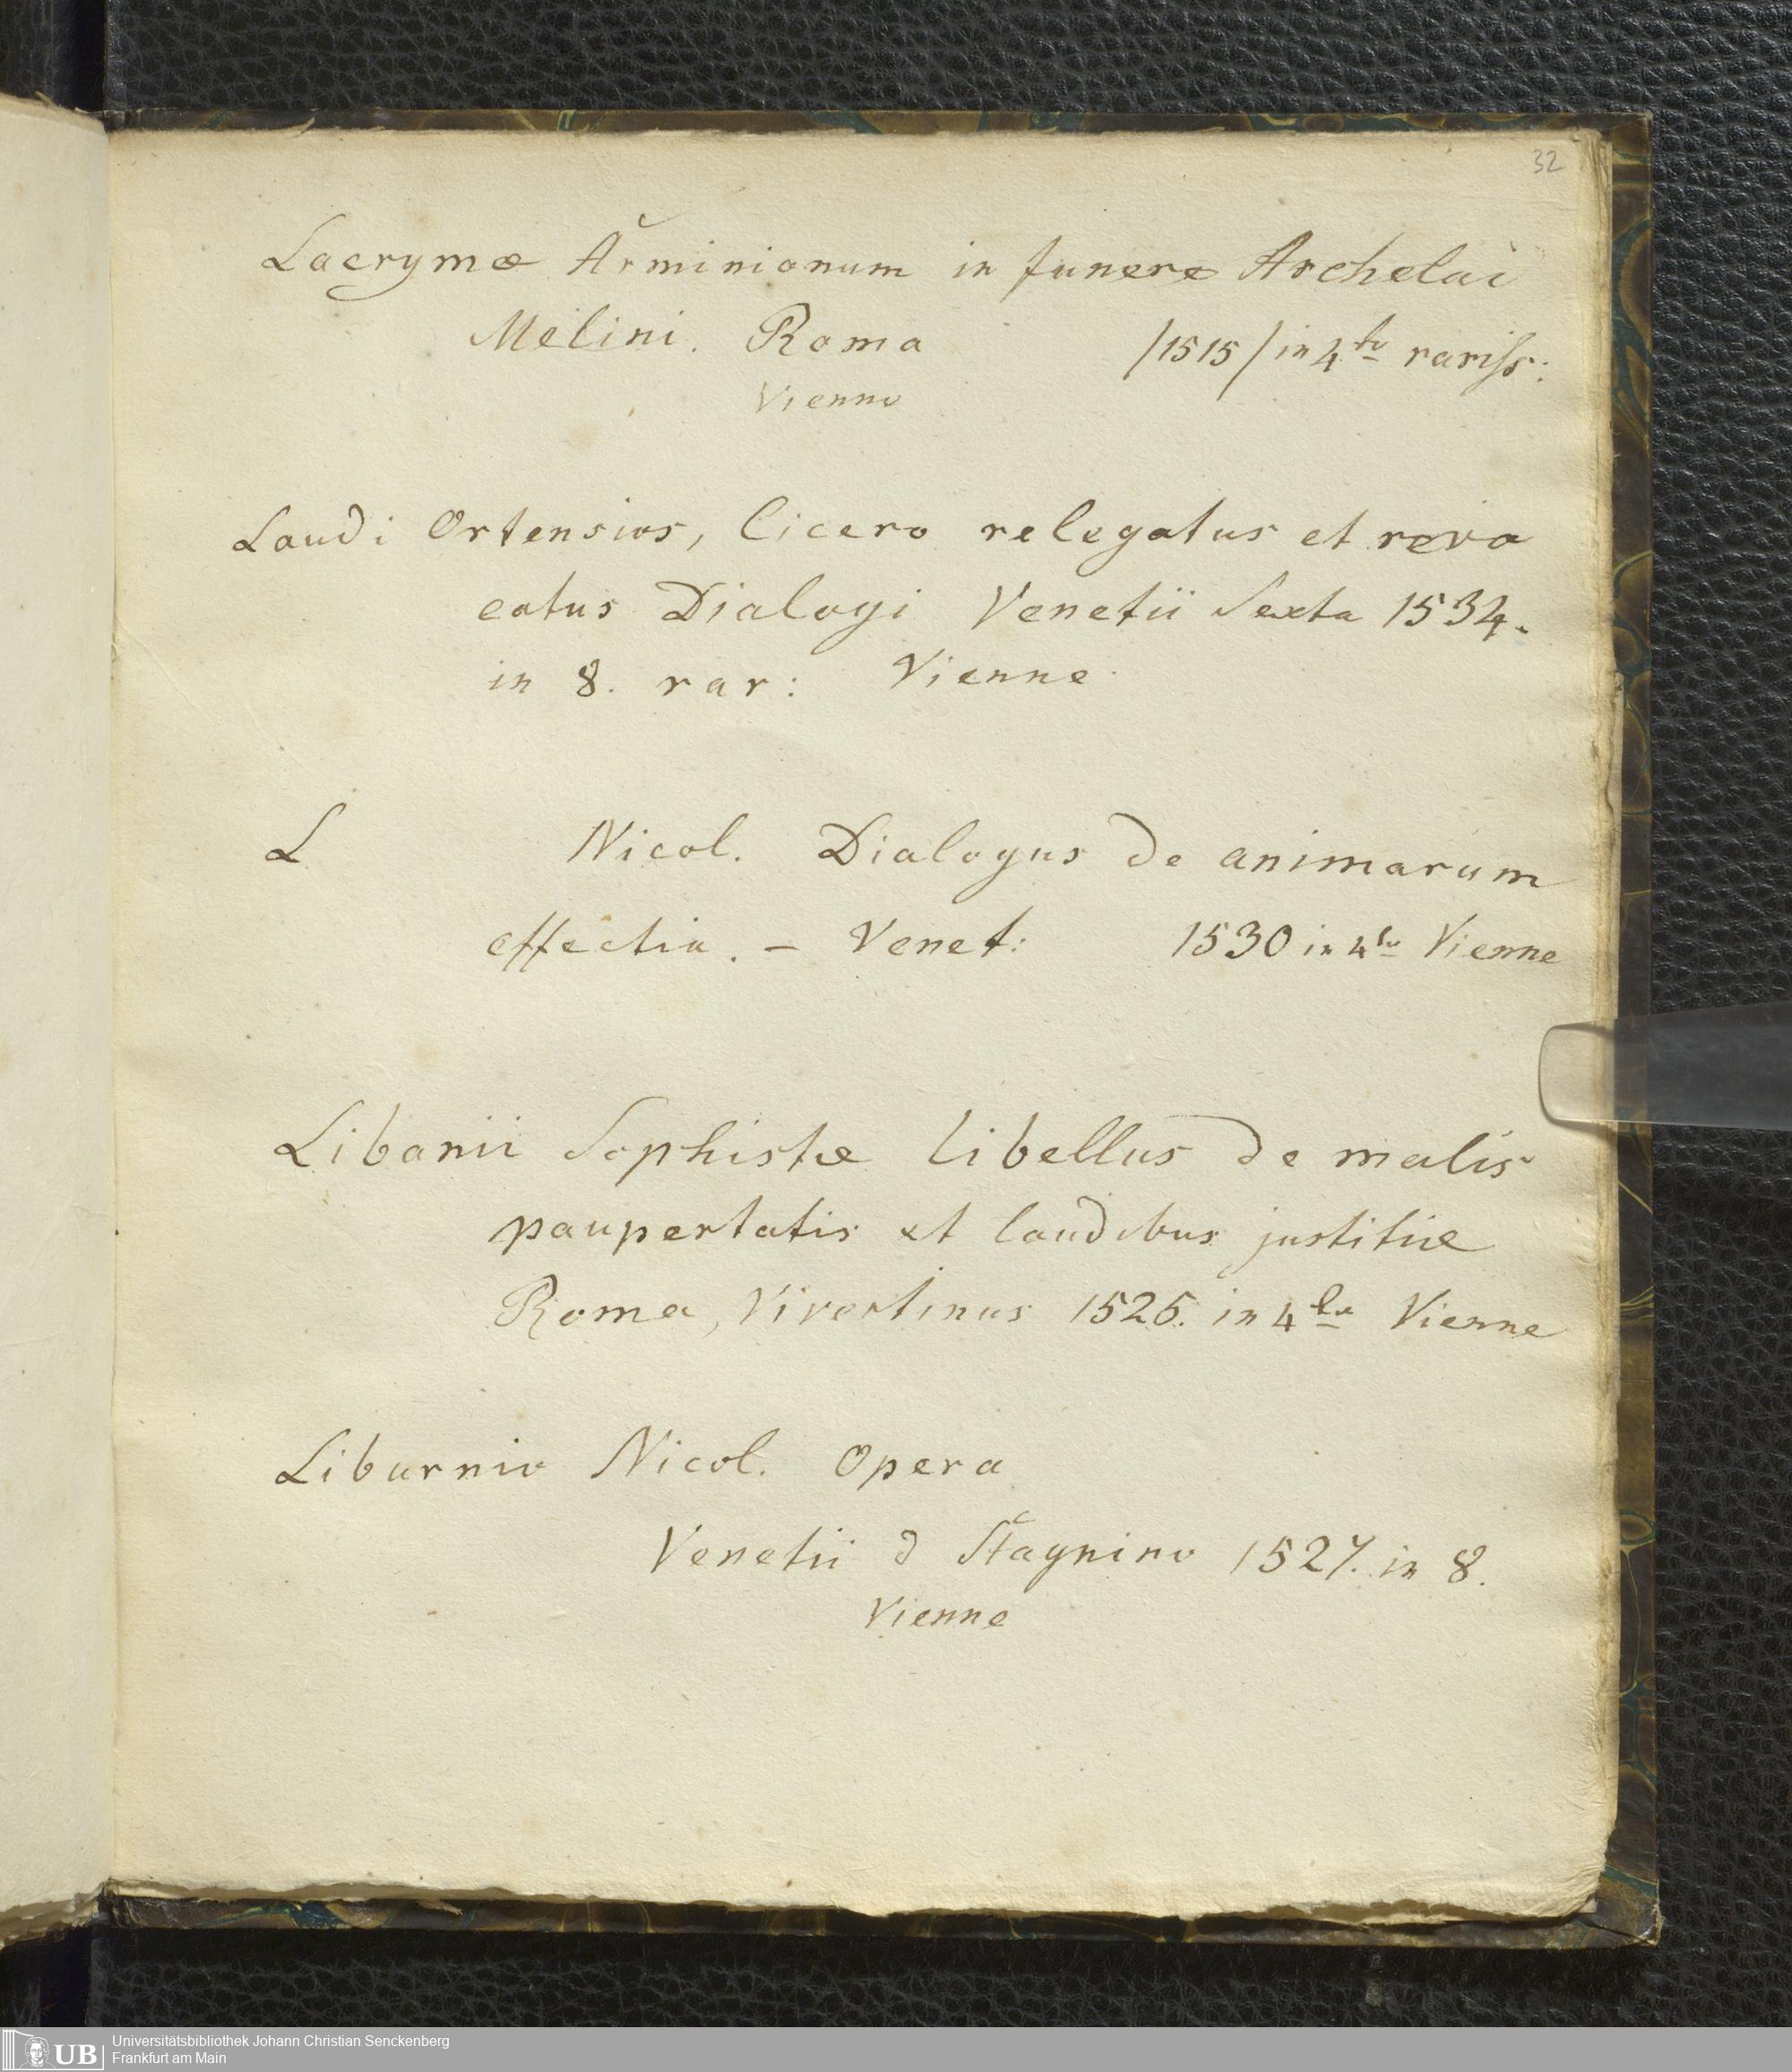 32
Lacrymæ Arminianum in funere Archelai
Melini. Roma /1515/ in 4to rariss:
Vienne
Laudi Ortensius, Cicero relegatus et revo
catus Dialogi Venetii Sexta 1534.
in 8. rar: Vienne
L Nicol. Dialogus de animarum
effectia. – Venet: 1530 in 4to Vienne
Libanii Sophistæ libellus de malis
paupertatis et laudibus justitiæ
Roma, 1525. in 4to Vienne
Liburnio Nicol. Opera
Venetii d Stagnino 1527. in 8.
Vienne
UB Universitätsbibliothek Johann Christian Senckenberg
Frankfurt am Main